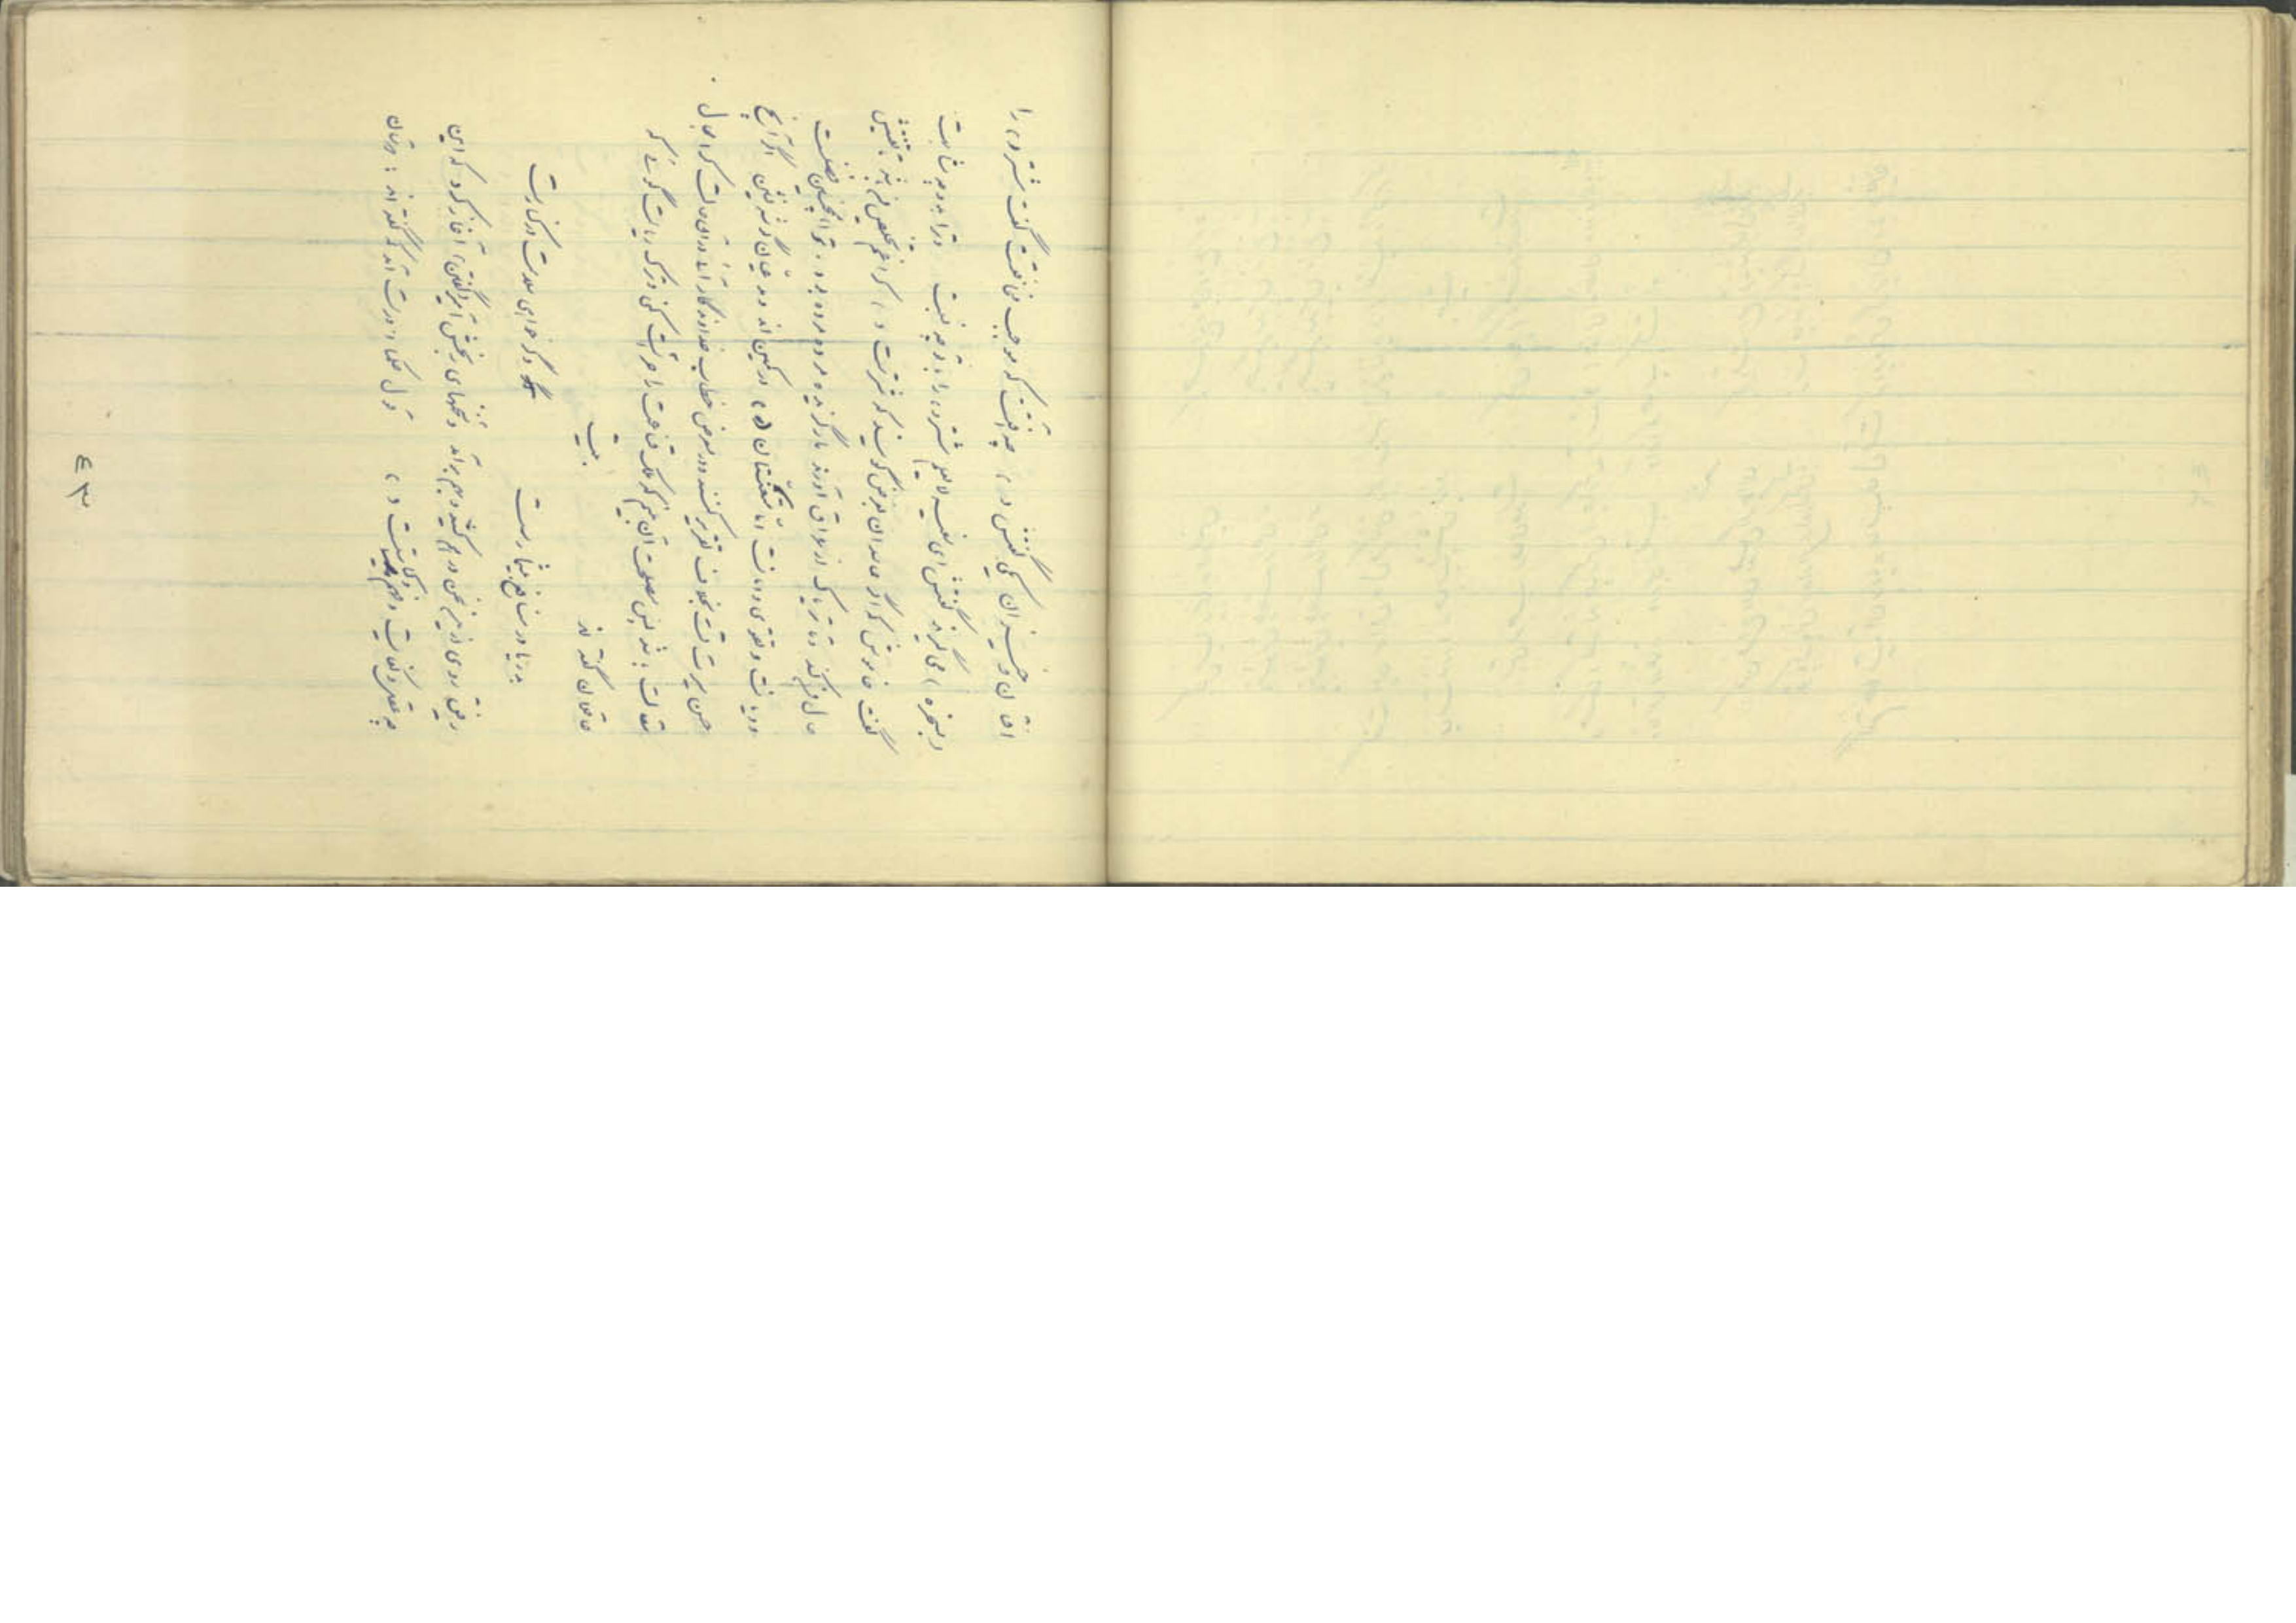 افتان و خیزان کسی گفتش که چه آفتست که موجب مخافتست گفت شتر را
بسخره می گیرند گفتش ای سفیه لایعلم شتر را با تو چه نسبت و ترا بدو چه مشابهت
گفت خاموش که اگر حاسدان بغرض گویند که شترست و کرا غم تخلیص من باشد تا تفتیش
حال من کند و تا تریاک از عراق آورند مارگزیده مرده بود ترا همچنین فضلست
و دیانت و تقوی و امانت اما متعنتان در کمین اند و مدعیان گوشه نشین اگر آنچ
حسن سیرت تست بخلاف تقریر کنند و در معرض خطاب خداوندگار آئی در آن حالت کرا مجال
مقالت باشد پس مصلحت آن بینم که ملک قناعت را حراست کنی و ترک ریاست گوئی که
عاقلان گفته اند
بیت
بدریا در منافع بیشمارست
و گر خواهی سلامت در کنارست
رفیق روی ازین سخن درهم کشید و بهم برآمد و سخنهای رنجش آمیز گفتن آغاز کرد که این
چه عقل و کفایت و فهم و کیاستست و قول حکما درست آمد که گفته اند دوستان
۴۳